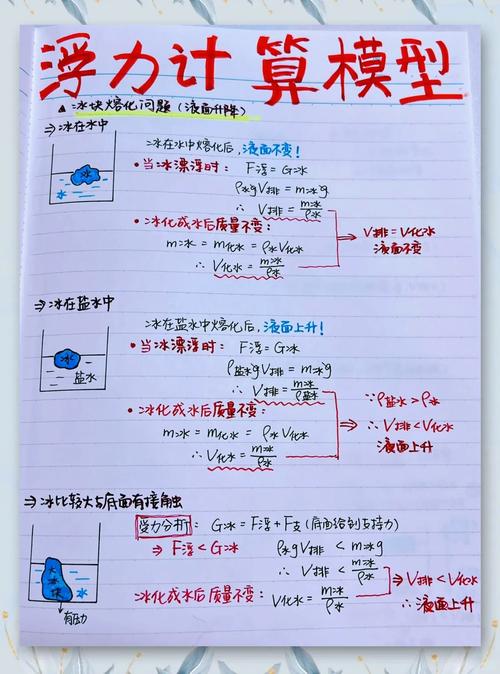 浮力计算模型
▲ 冰块熔化问题(液面升降)
⇒冰在水中
冰
冰在水中熔化后,液面不变!
• 当冰漂浮时: F浮=G冰
ρ水gV排=m冰g
∴ V排=m冰/ρ水
• 冰化成水后质量不变:
m冰=m化水=ρ水V化水
∴V化水=m冰/ρ水
⇒ V排=V化水
液面不变
⇒冰在盐水中
冰
盐水
冰在盐水中熔化后,液面上升!
• 当冰漂浮时: F浮=G冰
ρ盐水gV排=m冰g
∴ V排=m冰/ρ盐水
• 冰化成水后质量不变:
m冰=m化水=ρ水V化水
∴V化水=m冰/ρ水
⇒ ∵ρ盐水>ρ水
∴V排<V化水
液面上升
⇒冰比较大与底面有接触
大冰块
有压力
受力分析: G冰=F浮+F支(底面给到支持力)
⇒ F浮<G冰
ρ水gV排<m冰g
∴ V排<m冰/ρ水
冰化成水后质量不变: V化水=m冰/ρ水
⇒V排<V化水
∴液面上升